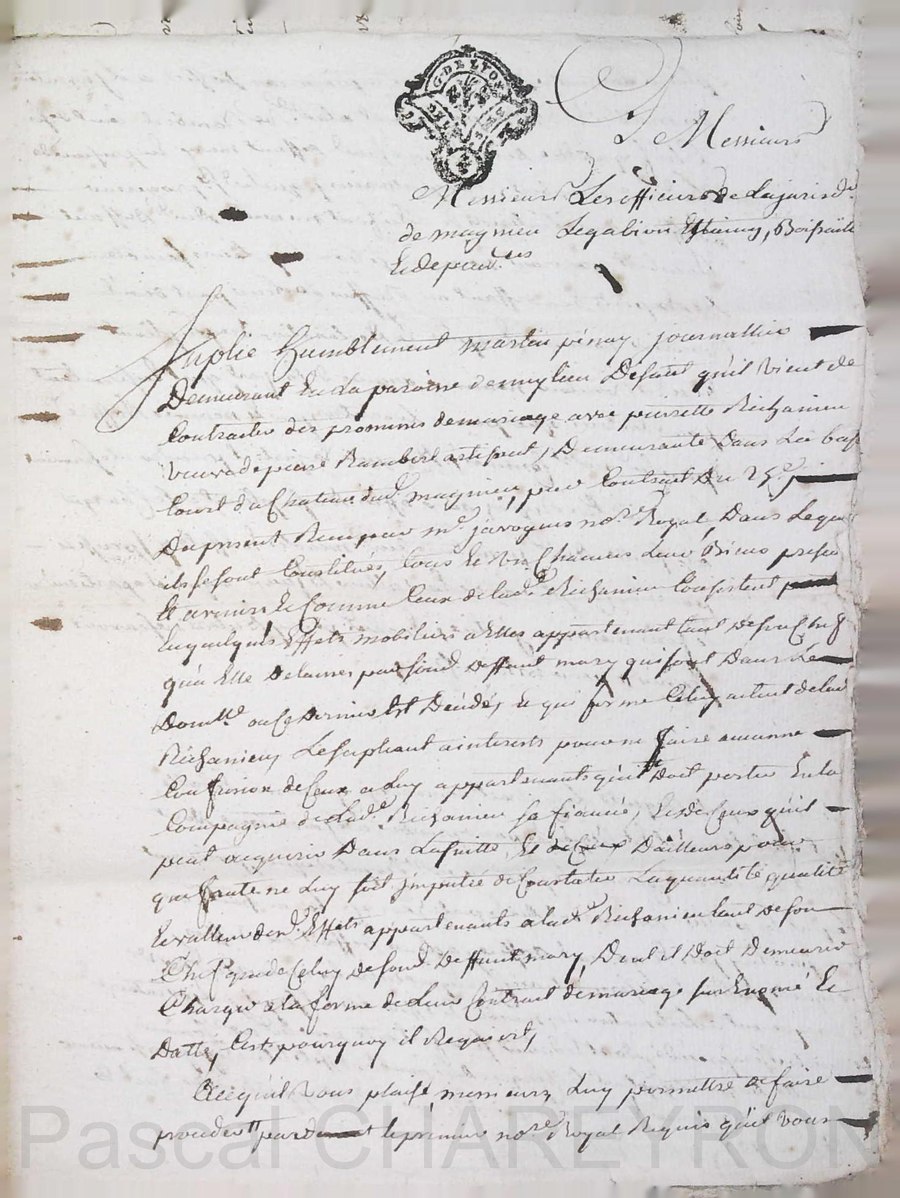 G. DE LYON
A Messieurs
Messieurs Les officiers de Lajurisd.
de magnieu Legabion Boisailli
Suplie humblement martin pinay journallier
Demeurant En La paroisse de Disant qu'il vient de
Contracter des promisses de mariage avec pierrette Richanieu
veuve de pierre Rambert Demeurante Dans La bas
Court du Chateau dud. magnieu, par Contrat Du 25e
Du present Recu par me. javogues nore. Royal, Dans Leque
ils se sont Constitués tous Leur Biens presen
Et avenir Et Comme Ceux de lade. Richanieu Consistent
En quelques Effets mobiliers a Elles appartenant tant de son Chef
qu'a Elle Delaissés par son Deffunt mary qui sont Dans Le
Domlle. ou Ce Dernier Est Décédé, Et qui forme Celuy actuel de lad
Richanieu, Le supliant a interests pour ne faire aucunne
Confusion de Ceux a Luy appartenants qu'il Doit porter En la
Compagnie de Lade. Richanieu sa fiancée, Et de Ceux qu'il
peut acquerir Dans La suitte, Et D'ailleurs pour
que faute ne Luy soit imputée de Constater La quantité qualité
Et valleur desd. Effets appartenants a lade. Richanieu tant de son
Chef que de Celuy de son Deffunt mary, Dont il Doit Demeurer
Chargé a la forme de Leur Contrat de mariage sus Enoncé Et
Datté, C'est pourquoy il Requiert,
Ace qu'il Vous plaise messieurs, Luy permettre de faire
proceder par le premier nore. Royal Requis qu'il Vous
Pascal CHAREYRON